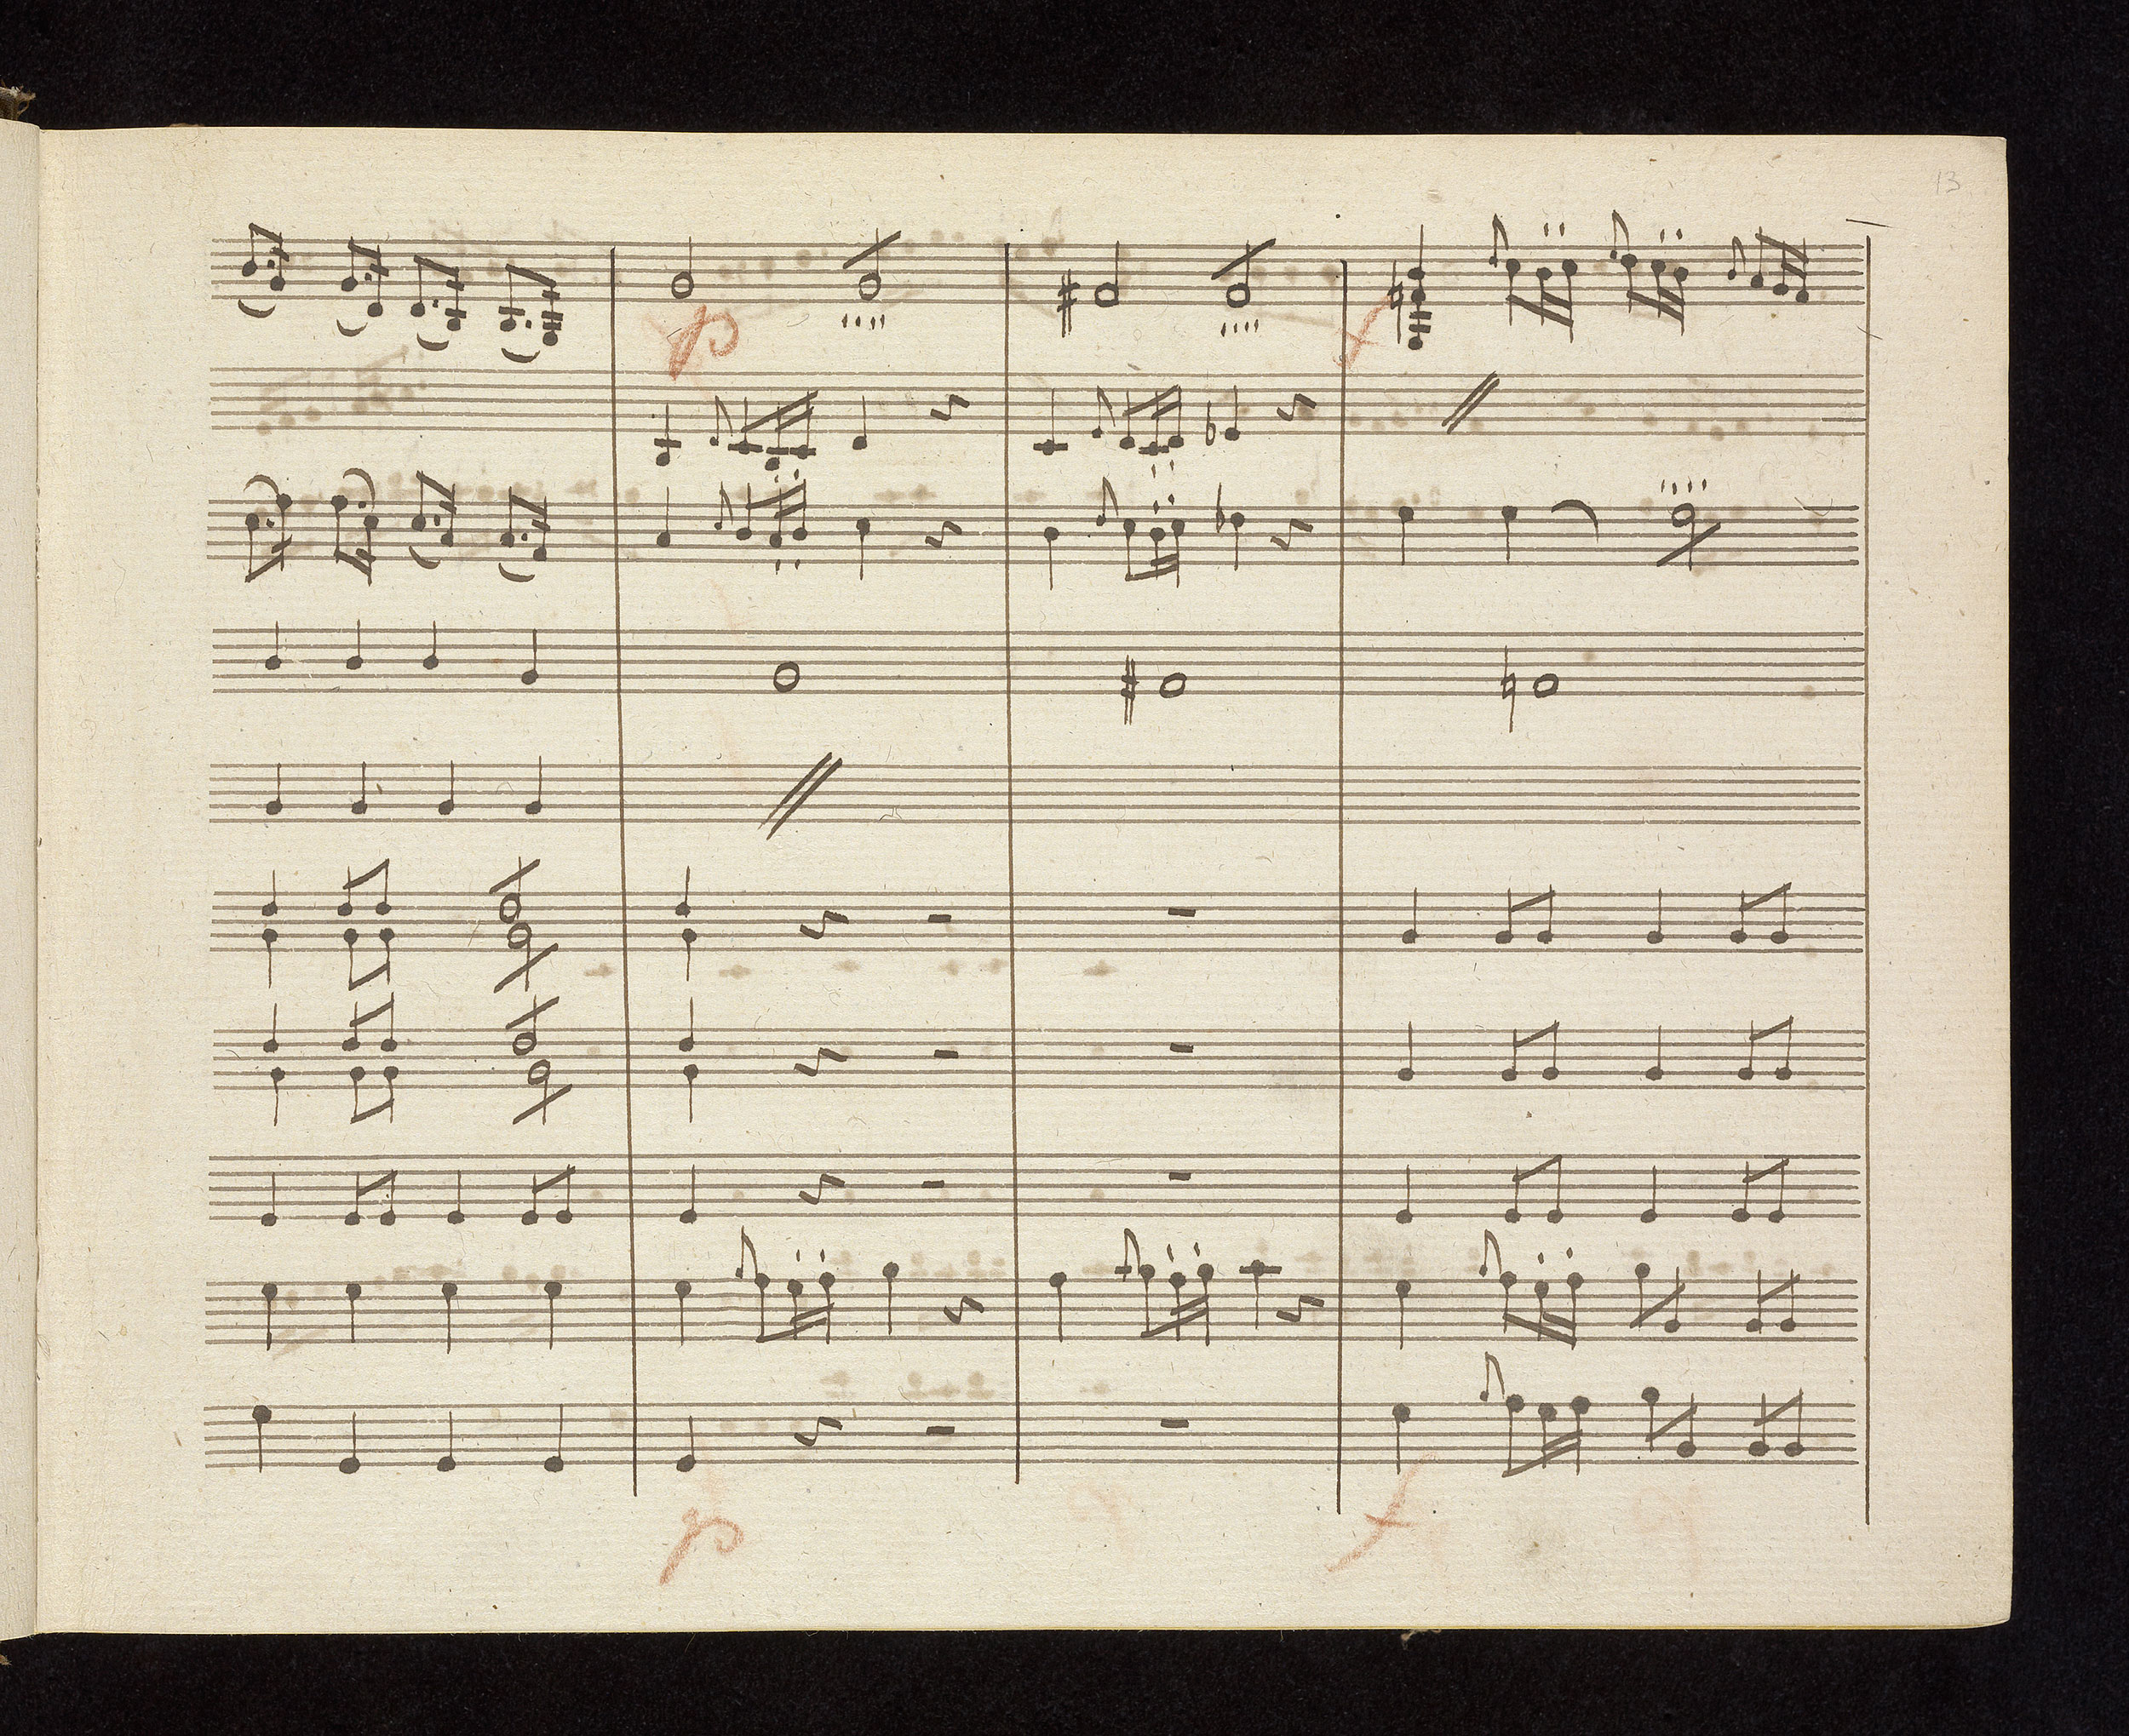 13
p
f
p
f